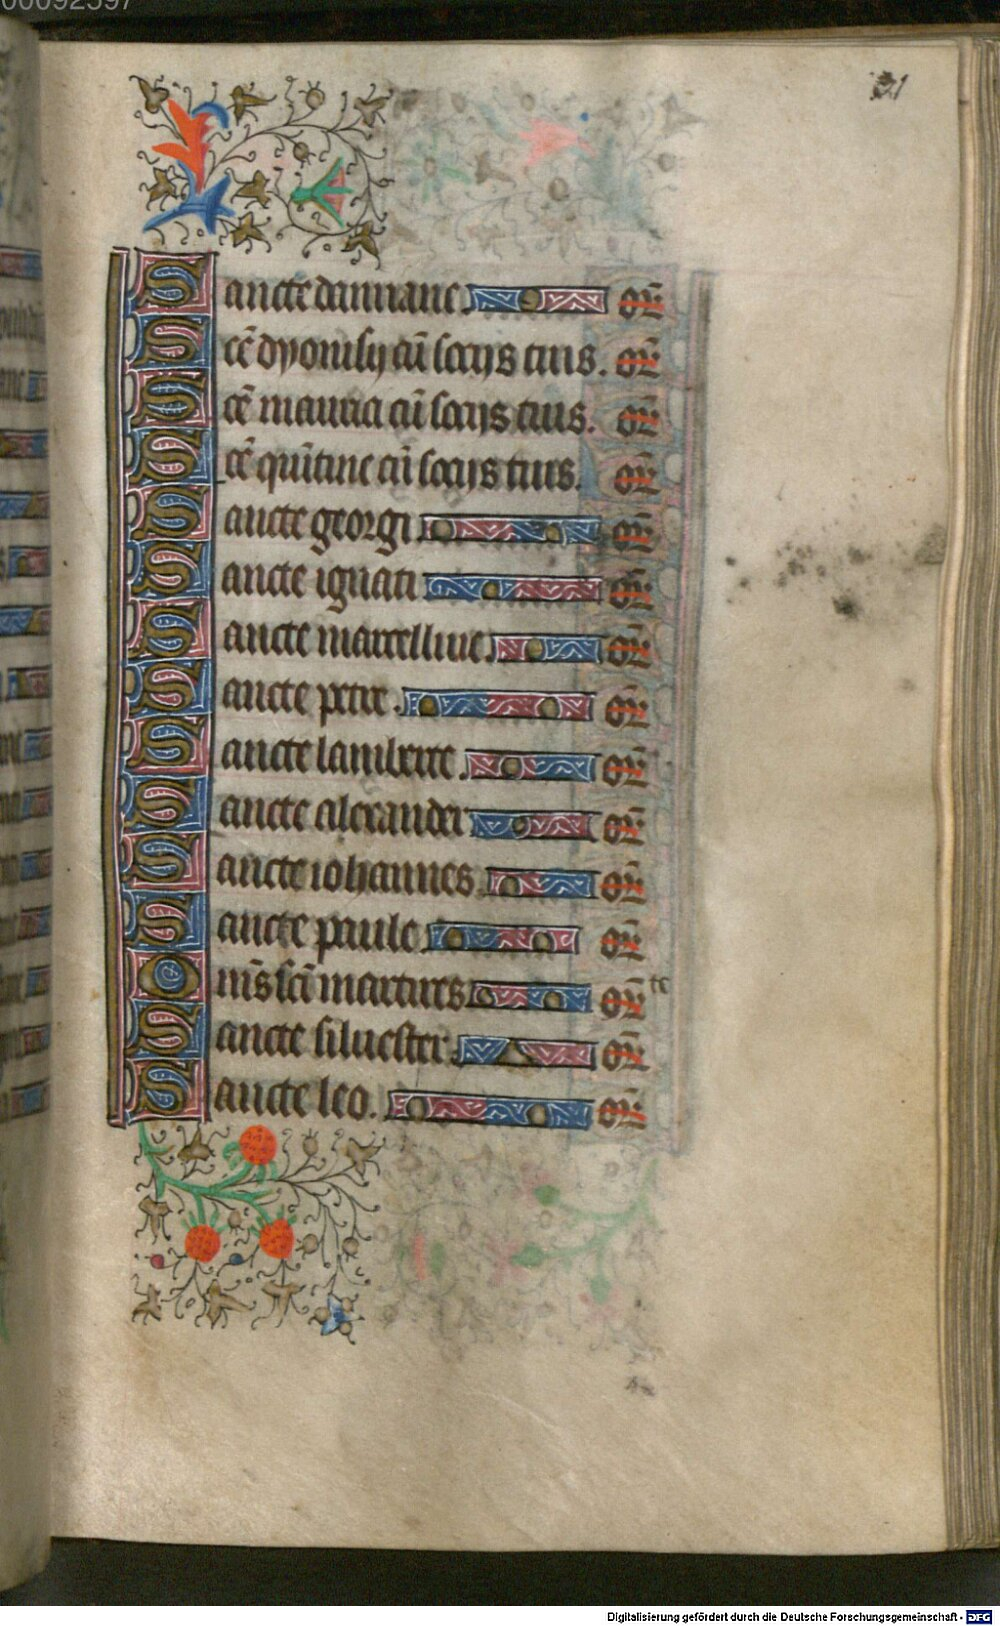 00092597
Sancte damiane. or̄
Scē dyonisy cū socijs tuis. or̄
Scē maurici cū socijs tuis. or̄
Scē quītine cū socijs tuis. or̄
Sancte georgi or̄
Sancte ignati or̄
Sancte marcelline. or̄
Sancte petre. or̄
Sancte lamberte. or̄
Sancte alexander or̄
Sancte iohannes. or̄
Sancte paule or̄
Om̄s scī martires or̄te
Sancte siluester. or̄
Sancte leo. or̄
Digitalisierung gefördert durch die Deutsche Forschungsgemeinschaft - DFG